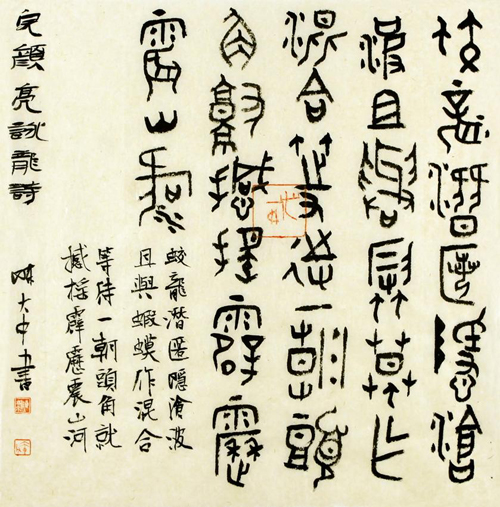 蛟龍潛匿隱滄
波且與蝦蟆作
混合等待一朝頭
角就撼搖霹靂
震山河
蛟龍潛匿隱滄波
且與蝦蟆作混合
等待一朝頭角就
撼搖霹靂震山河
完顏亮詠龍詩
陳大中書